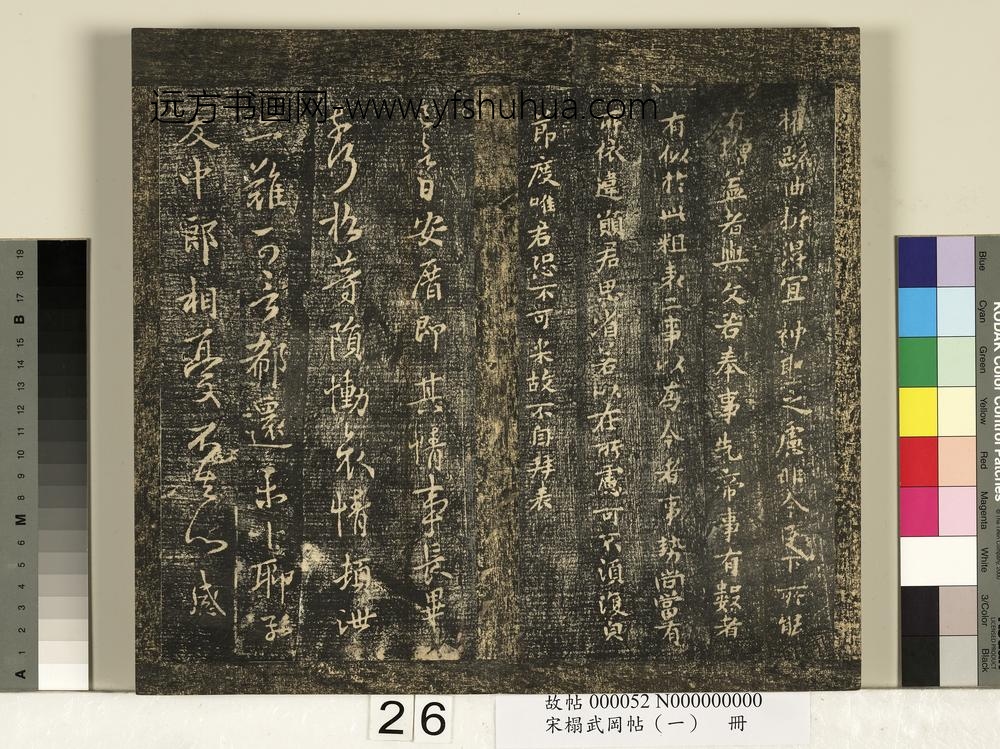 远方书画网-www.yfshuhua.com
疏曲折得宜神聖之慮非今臣下所能
有增益者與父昔奉事先帝事有毀者
有似於此粗表二事以為今者事勢尚當有
所依違願君思省若以在所慮可不須復白
節度唯君恐不可采故不自拜表
日安厝即其情事長畢
等隕慟哀情頓泄
難可言都還未卜聊示
友中郎相憂不去心感
26
故帖 000052 N000000000
宋榻武岡帖（一） 冊
KODAK Color Control Patches
Blue
Cyan
Green
Yellow
Red
Magenta
White
3/Color
Black
A 1 2 3 4 5 6 M 8 9 10 11 12 13 14 15 B 17 18 19